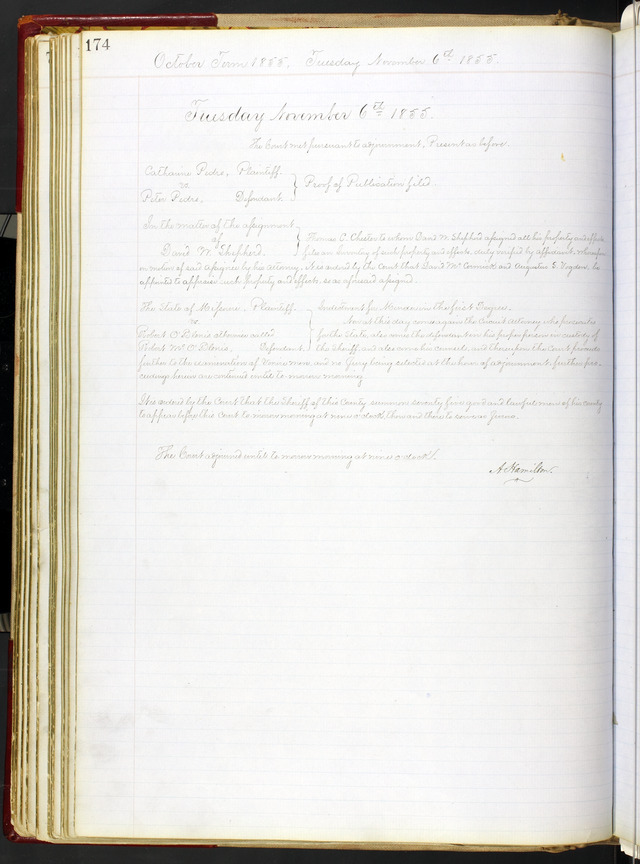 174
October Term 1855. Tuesday November 6th 1855.
Tuesday November 6th 1855.
The Court met pursuant to adjournment, Present as before.
Catharine Pedro, Plaintiff.
vs
Peter Pedro, Defendant.
Proof of Publication filed.
In the matter of the assignment
of
David W. Shepherd.
Thomas C. Chester to whom David W. Shepherd assigned all his property and effects
files an Inventory of such property and effects, duly verified by affidavit, Whereupon
on motion of said assignee by his attorney, It is ordered by the Court that David and Augustus S. be
appointed to appraise such property and effects so as aforesaid assigned.
The State of Missouri, Plaintiff.
vs
Robert O'Blenis otherwise called
Robert McO'Blenis, Defendant.
Indictment for Murder in the first Degree.
Now at this day comes again the Circuit Attorney who prosecutes
for the State, also comes the defendant in his proper person in custody of
the Sheriff and also comes his Counsels, and thereupon the Court proceeds
further to the examination of Venire men and no Jury being selected at the hour of adjournment, further pro-
ceedings herein are continued until to morrow morning
It is ordered by the Court that the Sheriff of this County summon seventy five good and lawful men of his county
to appear before this Court to morrow morning at nine o'clock, then and there to serve as Jurors.
The Court adjourned until to morrow morning at nine o'clock.
A. Hamilton.